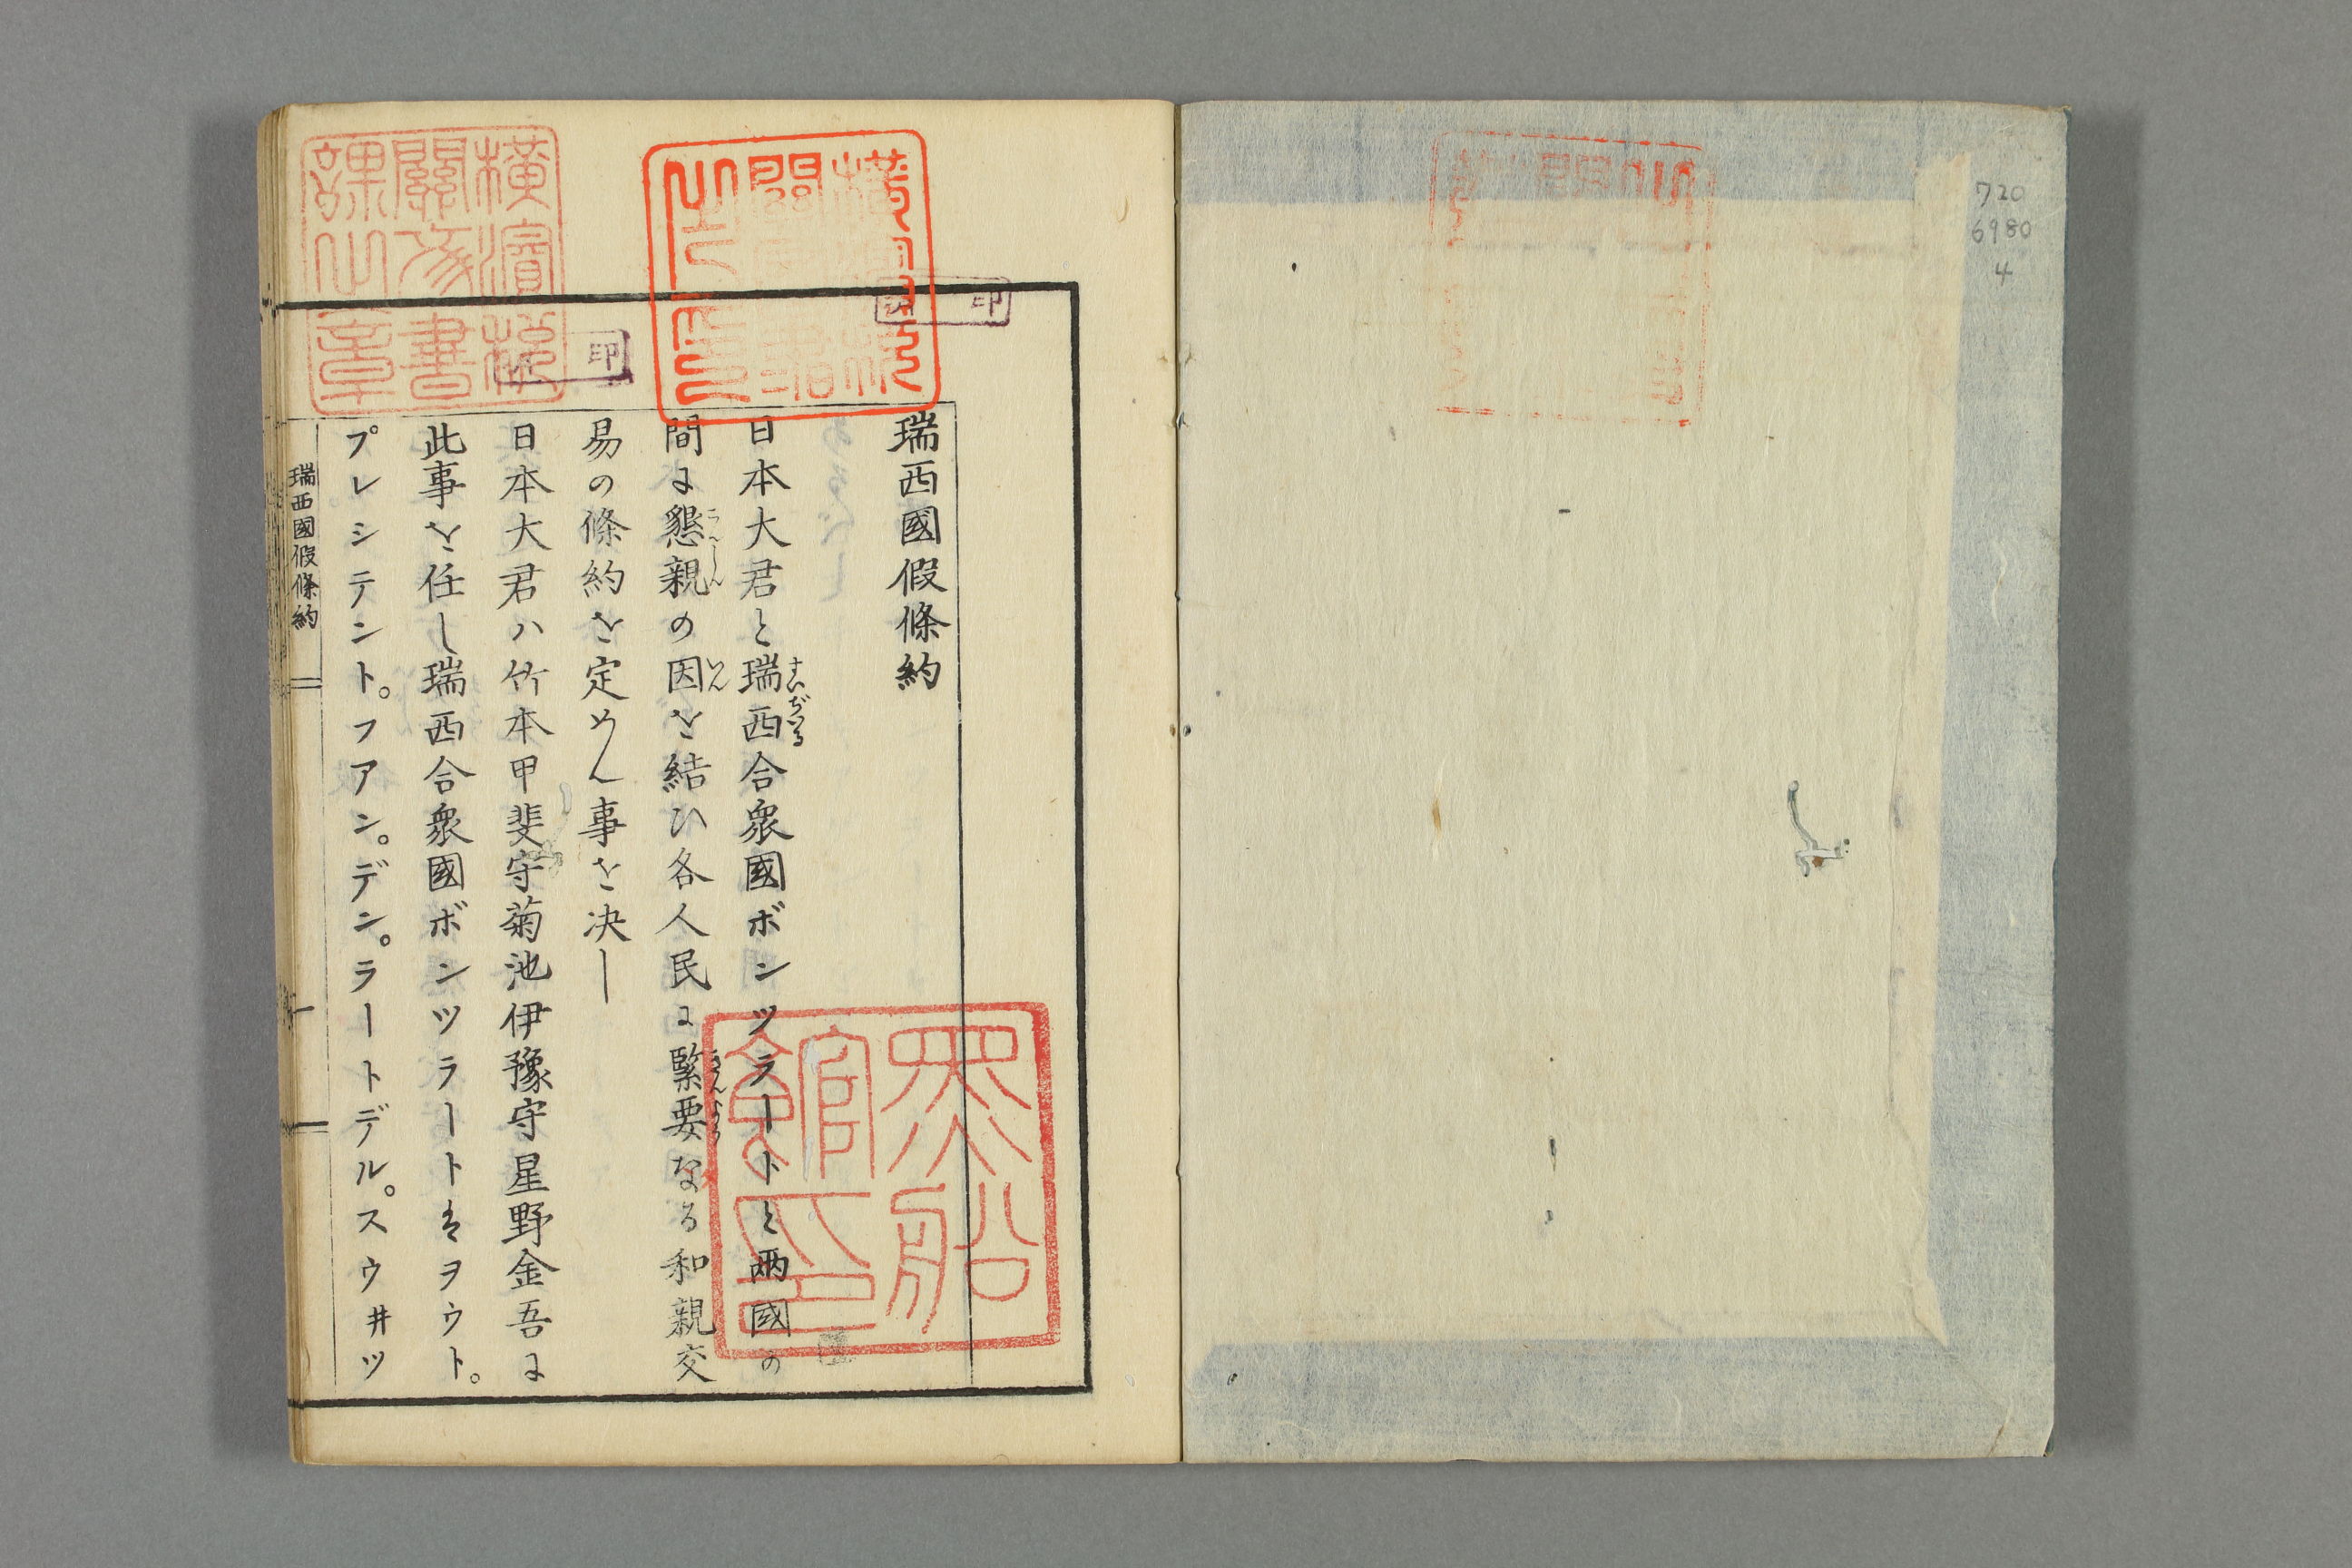 720
6980
4
瑞西國假條約
日本大君と瑞西合衆國ボンツラートと兩國の
すいぢいる
間に懇親の因を結ひ各人民に緊要なる和親交
こんしん
いん
きんよう
易の條約を定めん事を决し
日本大君ハ竹本甲斐守菊池伊豫守星野金吾に
此事を任し瑞西合衆國ボンツラートはヲウト。
プレシテント。フアン。デン。ラートデル。スウ井ツ
瑞西國假條約
一
橫濱稅
關飜書
課之章
印
印